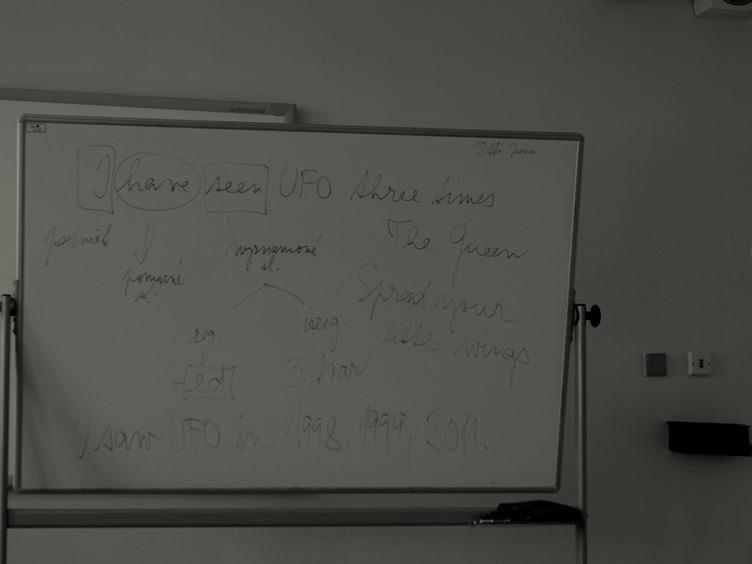 18th June
I have seen UFO three times.
podmět
pomocné
sl.
významové
sl.
The Queen
Spread your
little wings
reg.
irreg.
-ed
3. tvar
I saw UFO in 1998, 1999, 2011.